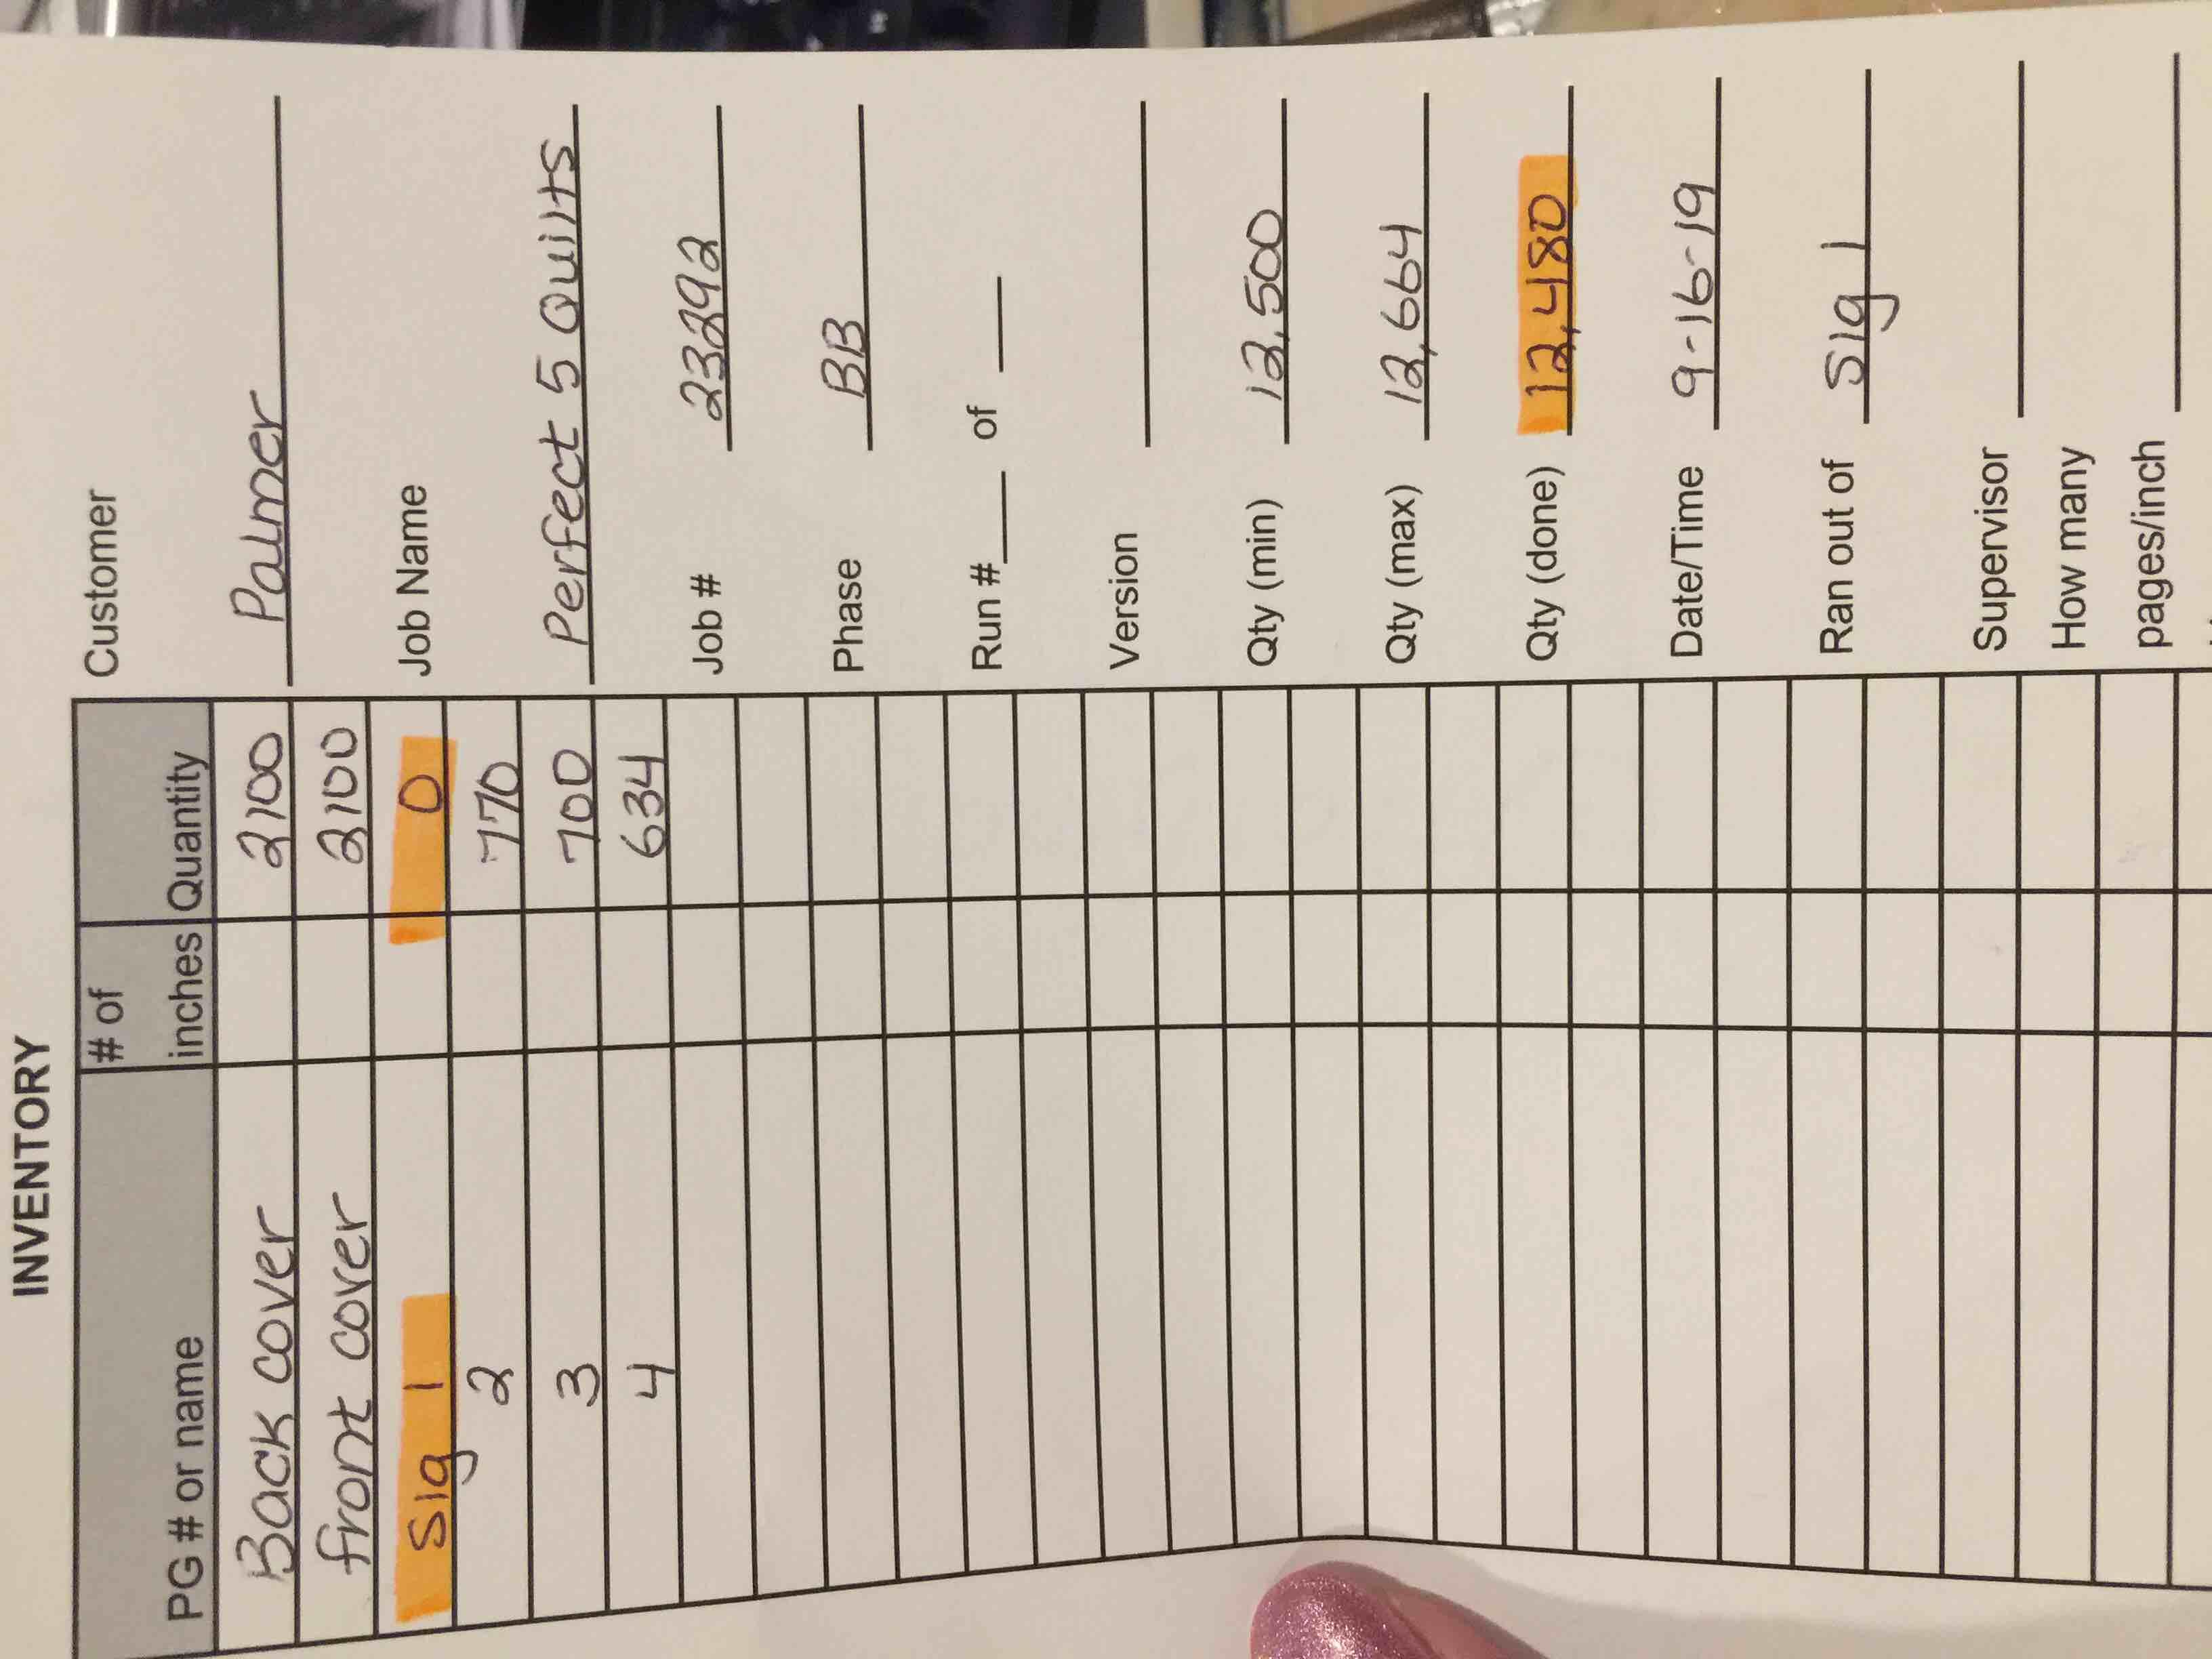 INVENTORY
PG # or name # of inches Quantity
Back cover 2100
front cover 2100
Sig 1 0
2 770
3 700
4 634
Customer
Palmer
Job Name
Perfect 5 Quilts
Job # 23292
Phase BB
Run #___ of ___
Version
Qty (min) 12,500
Qty (max) 12,664
Qty (done) 12,480
Date/Time 9-16-19
Ran out of Sig 1
Supervisor
How many
pages/inch